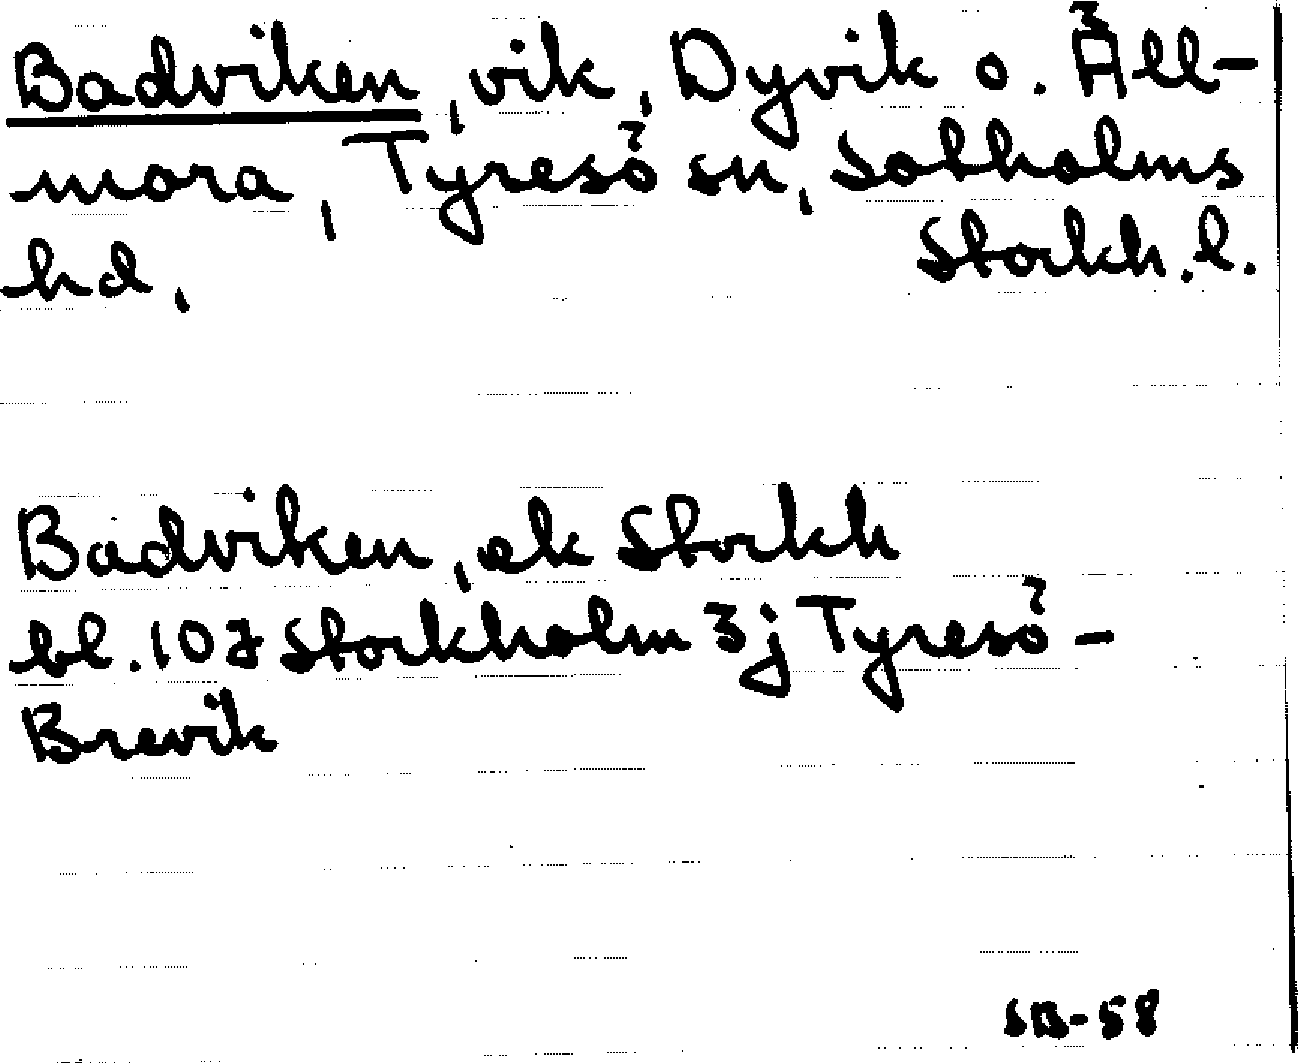 Badviken, vik, Dyvik o. Äll-
mora, Tyresö sn, Sotholms
hd, Stockh. l.
Badviken, ek Stockh
bl. 107 Stockholm 3j Tyresö-
Brevik
SB-58